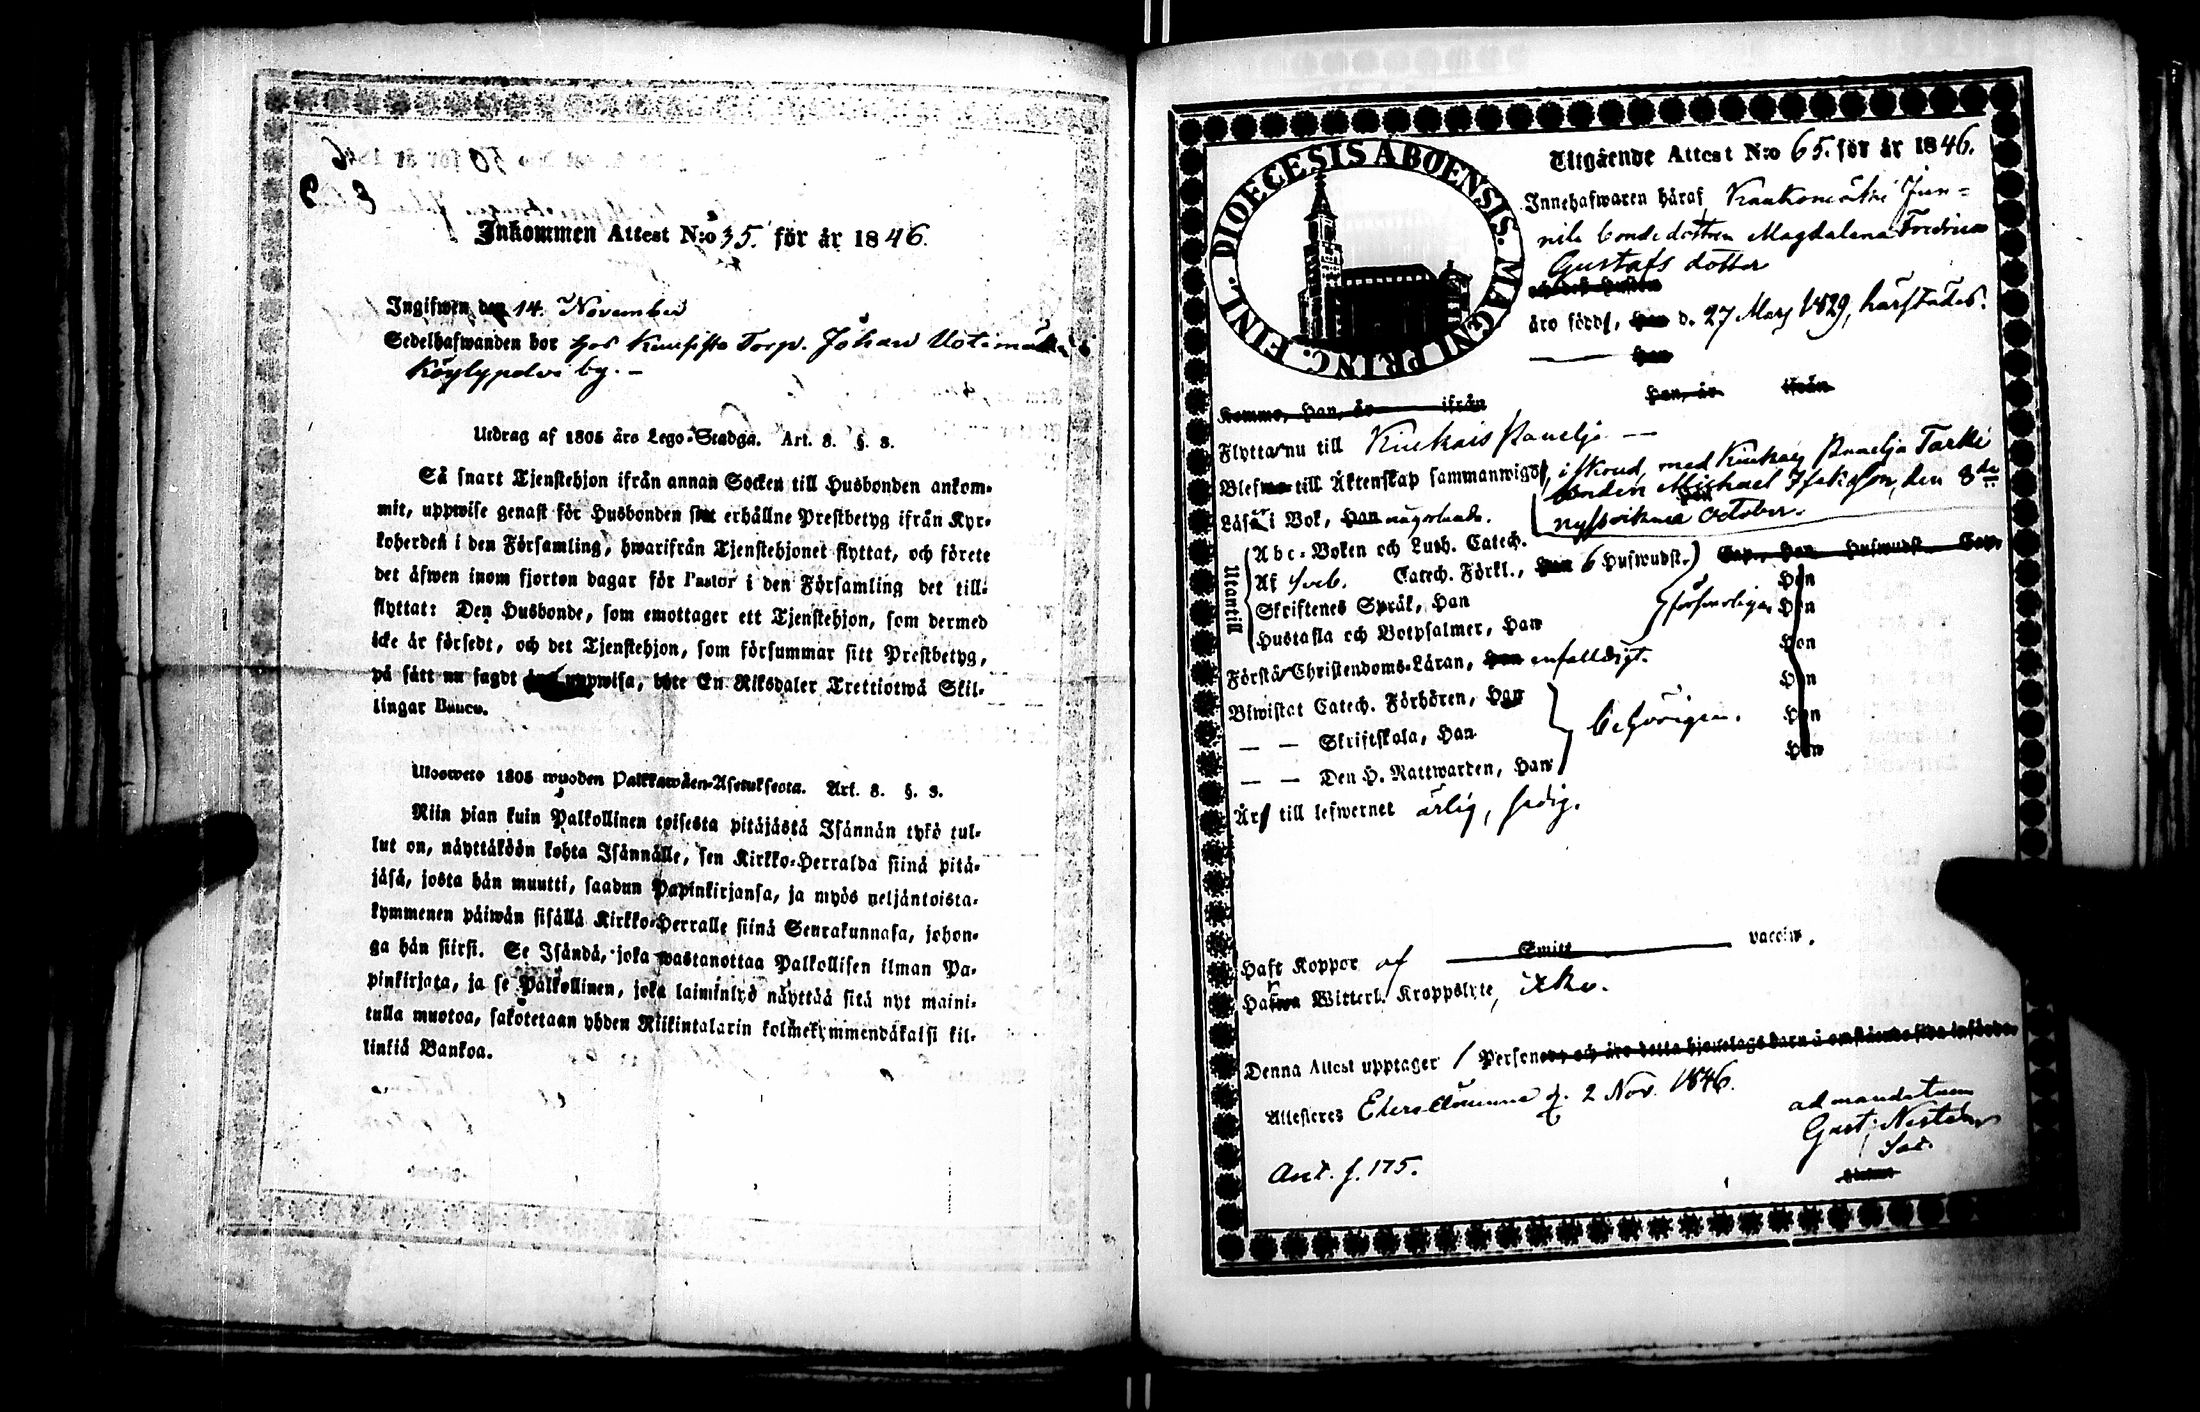 Inkommen Attest N:o 35. för år 1846.
Ingifwen den 14. November
Sedelhafwanden bor hos Torp. Johan
by. –
Utdrag af 1805 års Lego-Stadga. Art. 8. §. 3.
Så snart Tjenstehjon ifrån annan Socken till Husbonden ankom-
mit, uppwise genast för Husbonden sitt erhållne Prestbetyg ifrån Kyr-
koherden i den Församling, hwarifrån Tjenstehjonet flyttat, och förete
det äfwen inom fjorton dagar för Pastor i den Församling det till-
flyttat: Den Husbonde, som emottager ett Tjenstehjon, som dermed
icke är försedt, och det Tjenstehjon, som försummar sitt Prestbetyg,
på sätt nu sagdt är, uppwisa, böte En Riksdaler Trettiotwå Skil-
lingar Banco.
Ulosweto 1805 wuoden Palkkawäen-Asetuksesta. Art. 8. §. 3.
Niin pian kuin Palkollinen toisesta pitäjästä Isännän tykö tul-
lut on, näyttäköön kohta Isännälle, sen Kirkko-Herralda siinä pitä-
jäsä, josta hän muutti, saadun Papinkirjansa, ja myös neljäntoista-
kymmenen päiwän sisällä Kirkko-Herralle siinä Seurakunnasa, johon-
ga hän siirsi. Se Isändä, joka wastanottaa Palkollisen ilman Pa-
pinkirjata, ja se Palkollinen, joka laiminlyö näyttää sitä nyt maini-
tulla muotoa, sakotetaan yhden Riikintalarin kolmekymmendäkaksi kil-
linkiä Bankoa.
DIOECESIS ABOENSIS. MAGNI PRINC. FINL.
Utgående Attest N:o 65. för år 1846.
Innehafwaren häraf
bondedottren Magdalena Fredrica
Gustafs dotter
äro född, d. 27 Mars 1829, härstädes.
Han
Komme, Han, är ifrån Han, är ifrån
Flytta nu till Kiukais Panelja –
Blefwo till Äktenskap sammanwigde, med Kiukais Panelja
bonden Michael Isaksson, den 8de
October.
Läsa i Bok, Han någorlunda.
Utantill
Abc-Boken och Luth. Catech.
Af Sveb. Catech. Förkl., Han 6 Huswudst. Cap., Han Huswudst. Cap.
Skriftenes Språk, Han Han
Hustafla och Botpsalmer, Han försvarligen Han
Förstå Christendoms-Läran, Han enfalldigt. Han
Biwistat Catech. Förhören, Han Han
— — Skriftskola, Han behörigen. Han
— — Den H. Nattwarden, Han Han
Är till lefwernet ärlig, sedig.
Haft Koppor af Smitt vaccin.
Hafwa Witterl. Kroppslyte, icke.
Denna Attest upptager 1 Personer, och äro detta hjonelags barn å omstående sida införda.
Attesteras d. 2 Nov. 1846.
ad mandatum
Gust. Sac.
Ant. f. 175.